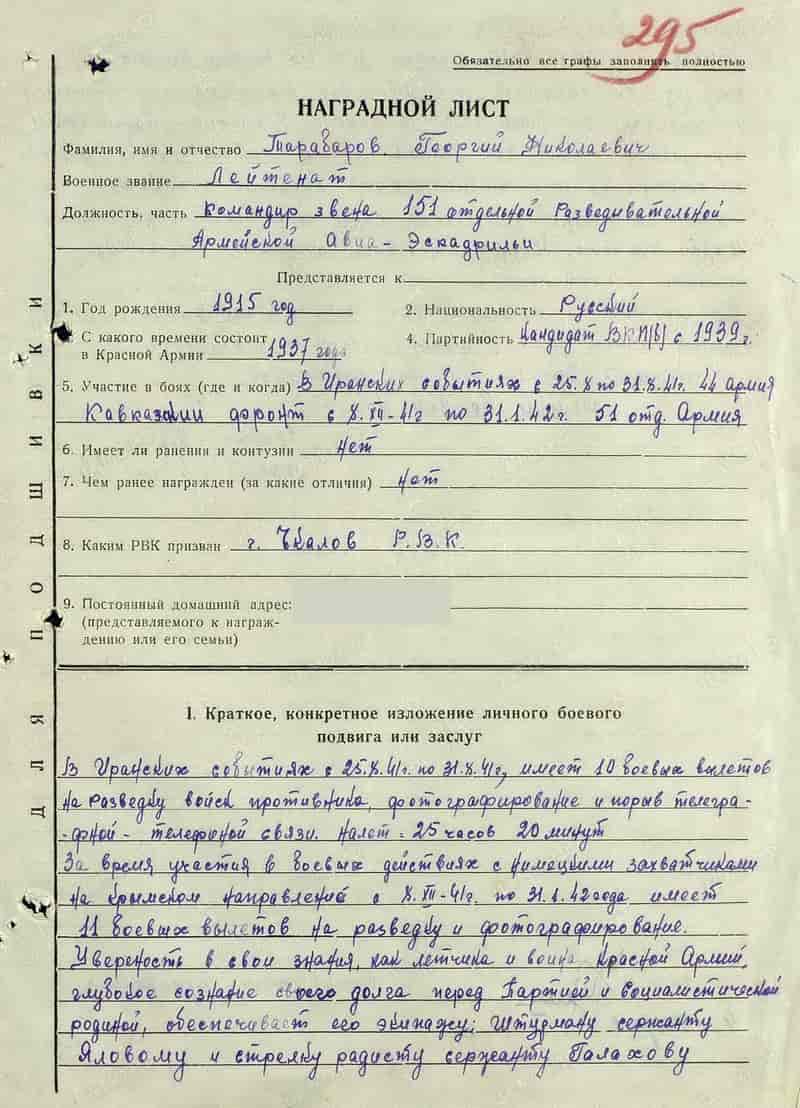 295
Обязательно все графы заполнять полностью
НАГРАДНОЙ ЛИСТ
Фамилия, имя и отчество Тараваров Георгий Николаевич
Военное звание Лейтенат
Должность, часть Командир звена 151 отдельной Разведивательной
Армейской Авиа-Эскадрильи
Представляется к
1. Год рождения 1915 год
2. Национальность Русский
С какого времени состоит
в Красной Армии 1937 года
4. Партийность Кандидат ВКП(б) с 1939 г.
5. Участие в боях (где и когда) В Иранских событиях с 25.8 по 31.8.41г. 44 армия
Кавказский фронт с 8.XII-41г по 31.1.42г. 51 отд. Армия
6. Имеет ли ранения и контузии нет
7. Чем ранее награжден (за какие отличия) нет
8. Каким РВК призван г. Чкалов Р.В.К.
9. Постоянный домашний адрес:
(представляемого к награж-
дению или его семьи)
ДЛЯ ПОДШИВКИ
I. Краткое, конкретное изложение личного боевого
подвига или заслуг
В Иранских событиях с 25.8.41г. по 31.8.41г, имеет 10 боевых вылетов
на разведку войск противника, фотографирование и порыв телегра-
-фной - телефоной связи. Налет = 25 часов 20 минут
За время участия в боевых действиях с нимецкими захватчиками
на крымском направлений с 8.XII-41г. по 31.1.42 года имеет
11 боевых вылетов на разведку и фотографирование.
Увереность в свои знания, как летчика и воина Красной Армий,
глубокое сознание своего долга перед Партией и социалистической
родиной, обеспечивает его экипажу; Штурману сержанту
Яловому и стрелку радисту сержанту Галахову